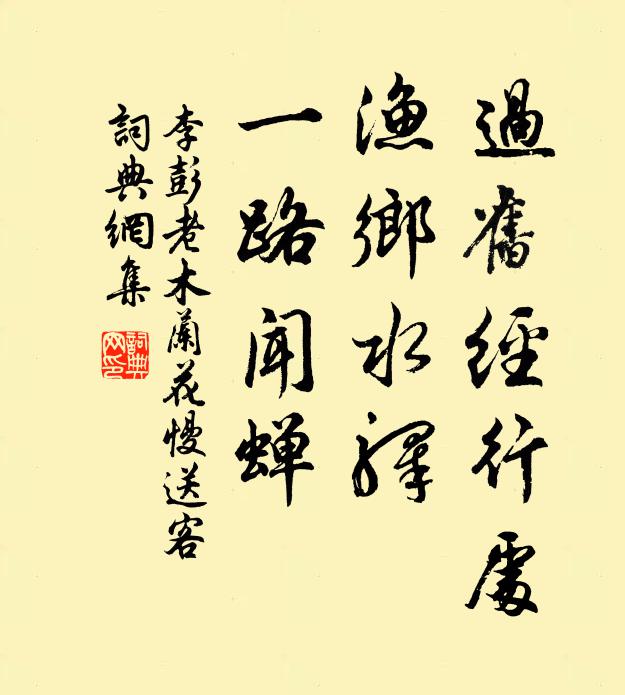 過舊經行處
漁鄉水驛
一路聞蟬
李彭老木蘭花慢送客
詞典網集
詞典
网印